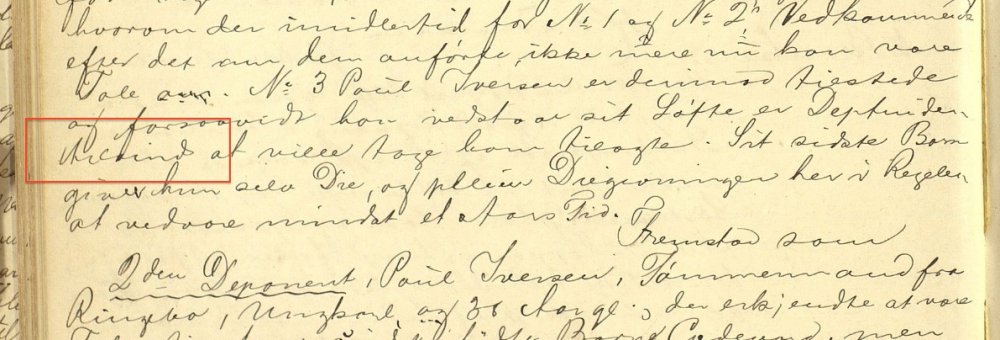 hvorom der imidlertid for No 1 og No 2s Vedkommende
efter det om dem anførte, ikke mere nu kan være
Tale om. No 3 Paul Iversen er derimod tilstede
og forsaavidt han vedstaar sit Løfte er Deptinden
at ville tage ham tilægte. Sit sidste Barn
giver hun selv Die, og pleier Diegivninger her i Regelen
at vedvare mindst et Aars Tid.
Fremstod som
2den Deponent, Paul Iversen, Tømmermand fra
Ringebo, Ungkarl og 36 Aar gl; der erkjendte at være
men